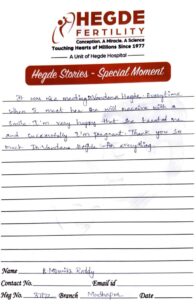 HEGDE
FERTILITY
Conception. A Miracle. A Science
Touching Hearts of Millions Since 1977
A Unit of Hegde Hospital
Hegde Stories - Special Moment
It was nice meeting Vandana Hegde. Everytime
when I meet her she will receive with a
smile I'm very happy that she treated me
and successfully I'm pregnant. Thank you so
much Dr. Vandana Hegde for everything.
Name K Mounika Reddy
Contact No. Email id
Heg No. Branch Madhapur Date